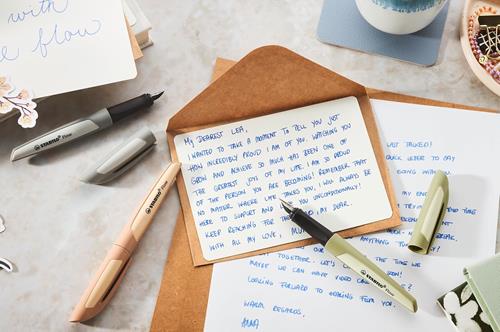 with
e flow
STABILO Flow
STABILO
STABILO Flow
MY DEAREST LEA,
I WANTED TO TAKE A MOMENT TO TELL YOU JUST
HOW INCREDIBLY PROUD I AM OF YOU. WATCHING YOU
GROW AND ACHIEVE SO MUCH HAS BEEN ONE OF
THE GREATEST JOYS OF MY LIFE. I AM SO PROUD
OF THE PERSON YOU ARE BECOMING! REMEMBER THAT
NO MATTER WHERE LIFE TAKES YOU, I WILL ALWAYS BE
HERE TO SUPPORT AND YOU UNCONDITIONALLY!
KEEP REACHING FOR THE MY DEAR.
WITH ALL MY LOVE, MUM
LAST TALKED!
QUICK LETTER TO SAY
GOING WITH
MY
TIME
ANYTHING
TOGETHER. LET'S THE TIME WE
MAYBE WE CAN HAVE VIDEO SOON!
LOOKING FORWARD TO HEARING FROM YOU.
WARM REGARDS,
ANNA
STABILO Flow